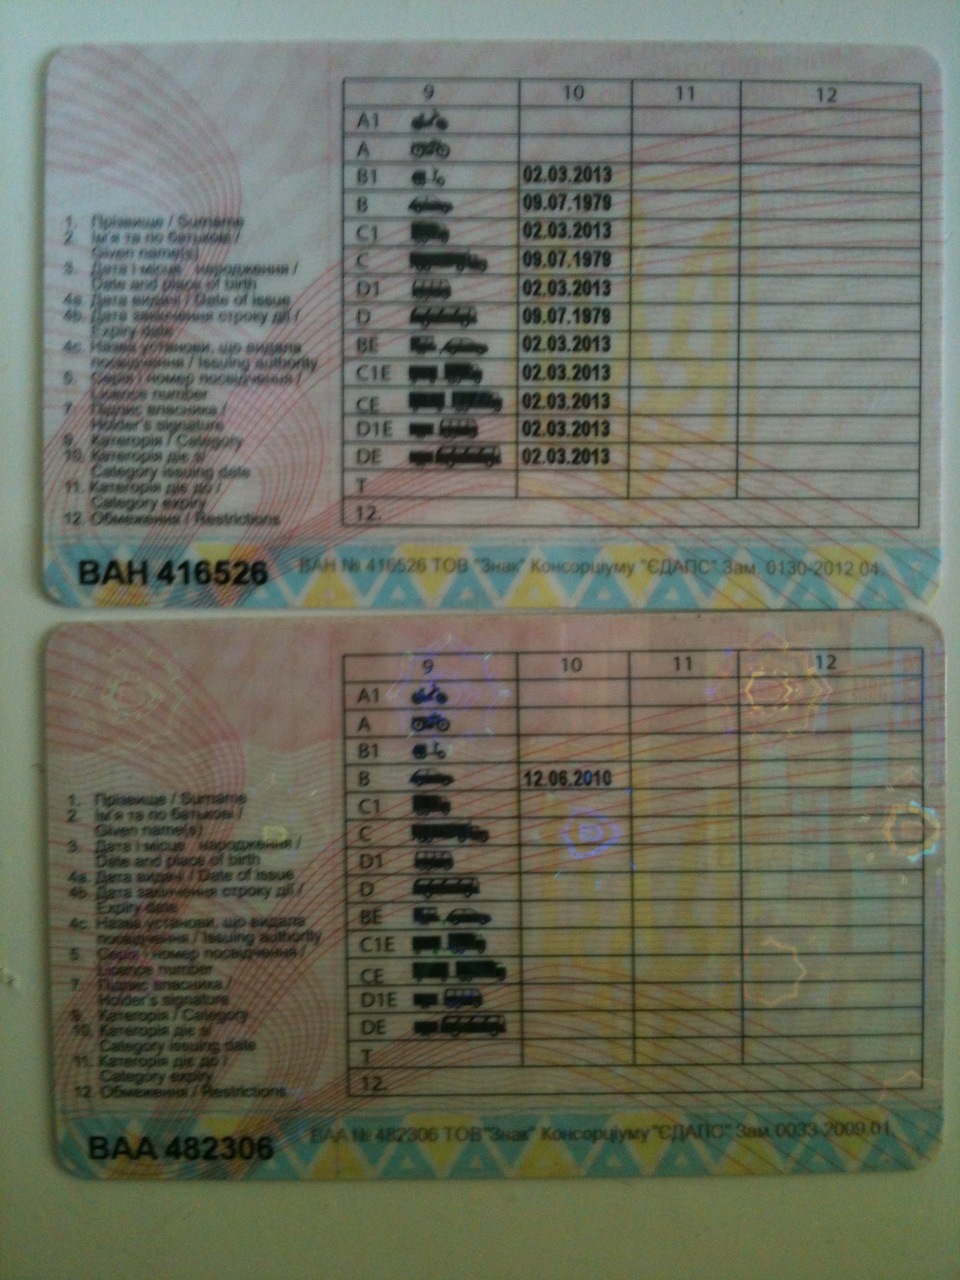 9 10 11 12
A1
A
B1 02.03.2013
B 09.07.1979
C1 02.03.2013
C 09.07.1979
D1 02.03.2013
D 09.07.1979
BE 02.03.2013
C1E 02.03.2013
CE 02.03.2013
D1E 02.03.2013
DE 02.03.2013
T
12.
1. Прізвище / Surname
2. Ім'я та по батькові /
Given name(s)
3. Дата і місце народження /
Date and place of birth
4a. Дата видачі / Date of issue
4b. Дата закінчення строку дії /
Expiry date
4c. Назва установи, що видала
посвідчення / Issuing authority
5. Серія і номер посвідчення /
Licence number
7. Підпис власника /
Holder's signature
9. Категорія / Category
10. Категорія діє з /
Category issuing date
11. Категорія діє до /
Category expiry
12. Обмеження / Restrictions
ВАН 416526 ВАН № 416526 ТОВ "Знак" Консорціуму "ЄДАПС" Зам. 0130-2012.04.
9 10 11 12
A1
A
B1
B 12.06.2010
C1
C
D1
D
BE
C1E
CE
D1E
DE
T
12.
1. Прізвище / Surname
2. Ім'я та по батькові /
Given name(s)
3. Дата і місце народження /
Date and place of birth
4a. Дата видачі / Date of issue
4b. Дата закінчення строку дії /
Expiry date
4c. Назва установи, що видала
посвідчення / Issuing authority
5. Серія і номер посвідчення /
Licence number
7. Підпис власника /
Holder's signature
9. Категорія / Category
10. Категорія діє з /
Category issuing date
11. Категорія діє до /
Category expiry
12. Обмеження / Restrictions
ВАА 482306 ВАА № 482306 ТОВ "Знак" Консорціуму "ЄДАПС" Зам.0033-2009.01.